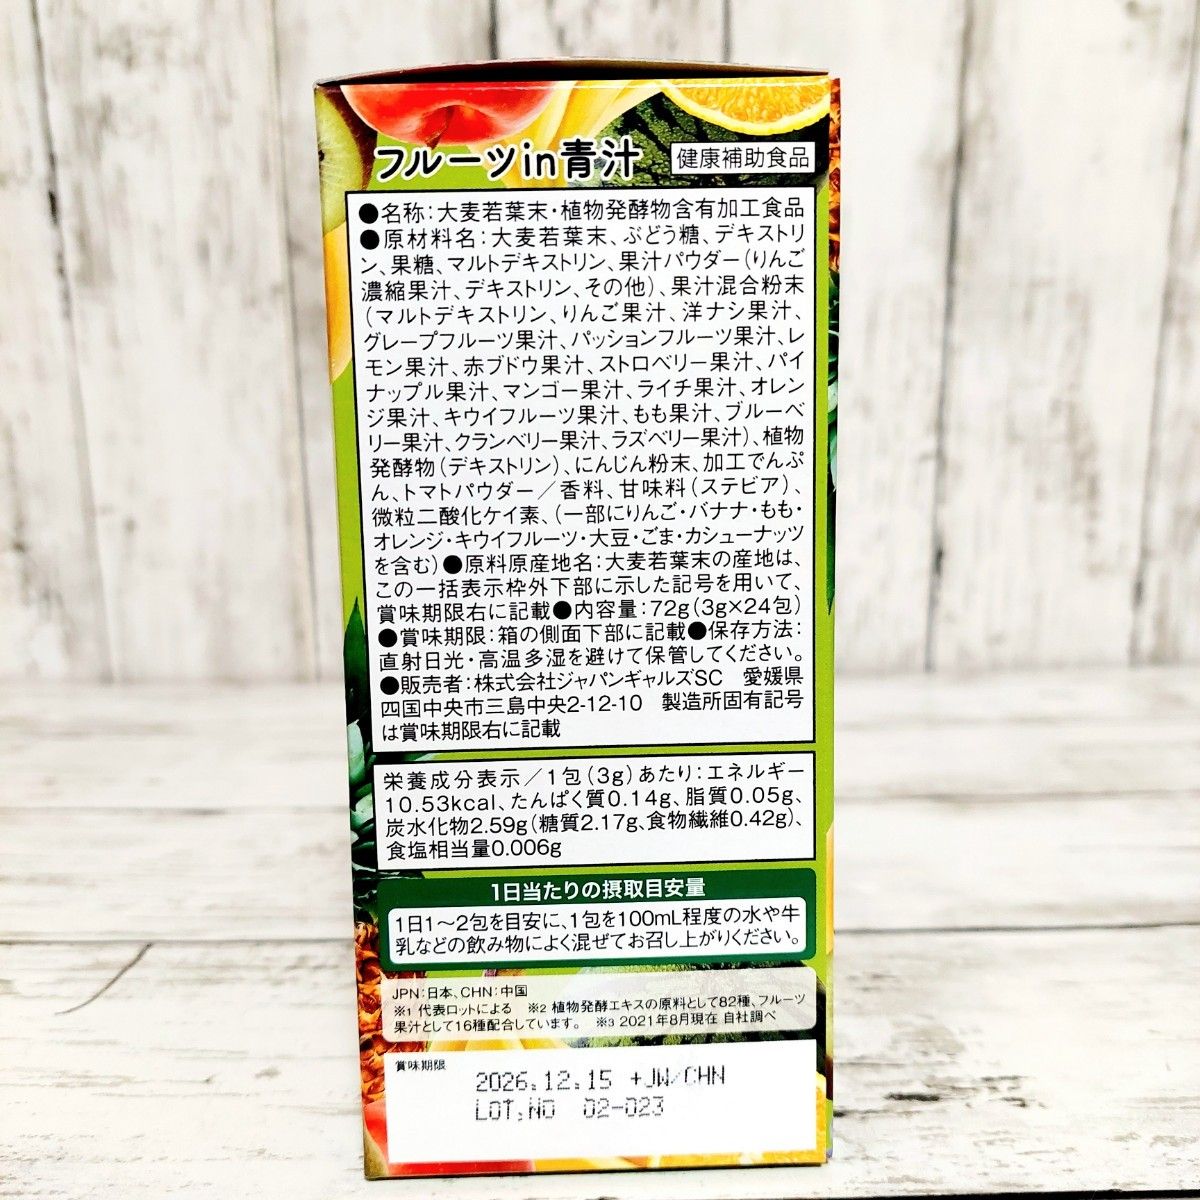 フルーツin青汁
健康補助食品
●名称:大麦若葉末・植物発酵物含有加工食品
●原材料名:大麦若葉末、ぶどう糖、デキストリ
ン、果糖、マルトデキストリン、果汁パウダー(りんご
濃縮果汁、デキストリン、その他)、果汁混合粉末
(マルトデキストリン、りんご果汁、洋ナシ果汁、
グレープフルーツ果汁、パッションフルーツ果汁、レ
モン果汁、赤ブドウ果汁、ストロベリー果汁、パイ
ナップル果汁、マンゴー果汁、ライチ果汁、オレン
ジ果汁、キウイフルーツ果汁、もも果汁、ブルーベ
リー果汁、クランベリー果汁、ラズベリー果汁)、植物
発酵物(デキストリン)、にんじん粉末、加工でんぷ
ん、トマトパウダー/香料、甘味料(ステビア)、
微粒二酸化ケイ素、(一部にりんご・バナナ・もも・
オレンジ・キウイフルーツ・大豆・ごま・カシューナッツ
を含む)●原料原産地名:大麦若葉末の産地は、
この一括表示枠外下部に示した記号を用いて、
賞味期限右に記載●内容量:72g(3g×24包)
●賞味期限:箱の側面下部に記載●保存方法:
直射日光・高温多湿を避けて保管してください。
●販売者:株式会社ジャパンギャルズSC 愛媛県
四国中央市三島中央2-12-10 製造所固有記号
は賞味期限右に記載
栄養成分表示/1包(3g)あたり:エネルギー
10.53kcal、たんぱく質0.14g、脂質0.05g、
炭水化物2.59g(糖質2.17g、食物繊維0.42g)、
食塩相当量0.006g
1日当たりの摂取目安量
1日1~2包を目安に、1包を100mL程度の水や牛
乳などの飲み物によく混ぜてお召し上がりください。
JPN:日本、CHN:中国
※1 代表ロットによる ※2 植物発酵エキスの原料として82種、フルーツ
果汁として16種配合しています。 ※3 2021年8月現在 自社調べ
賞味期限
2026.12.15 +JW/CHN
LOT.NO 02-023